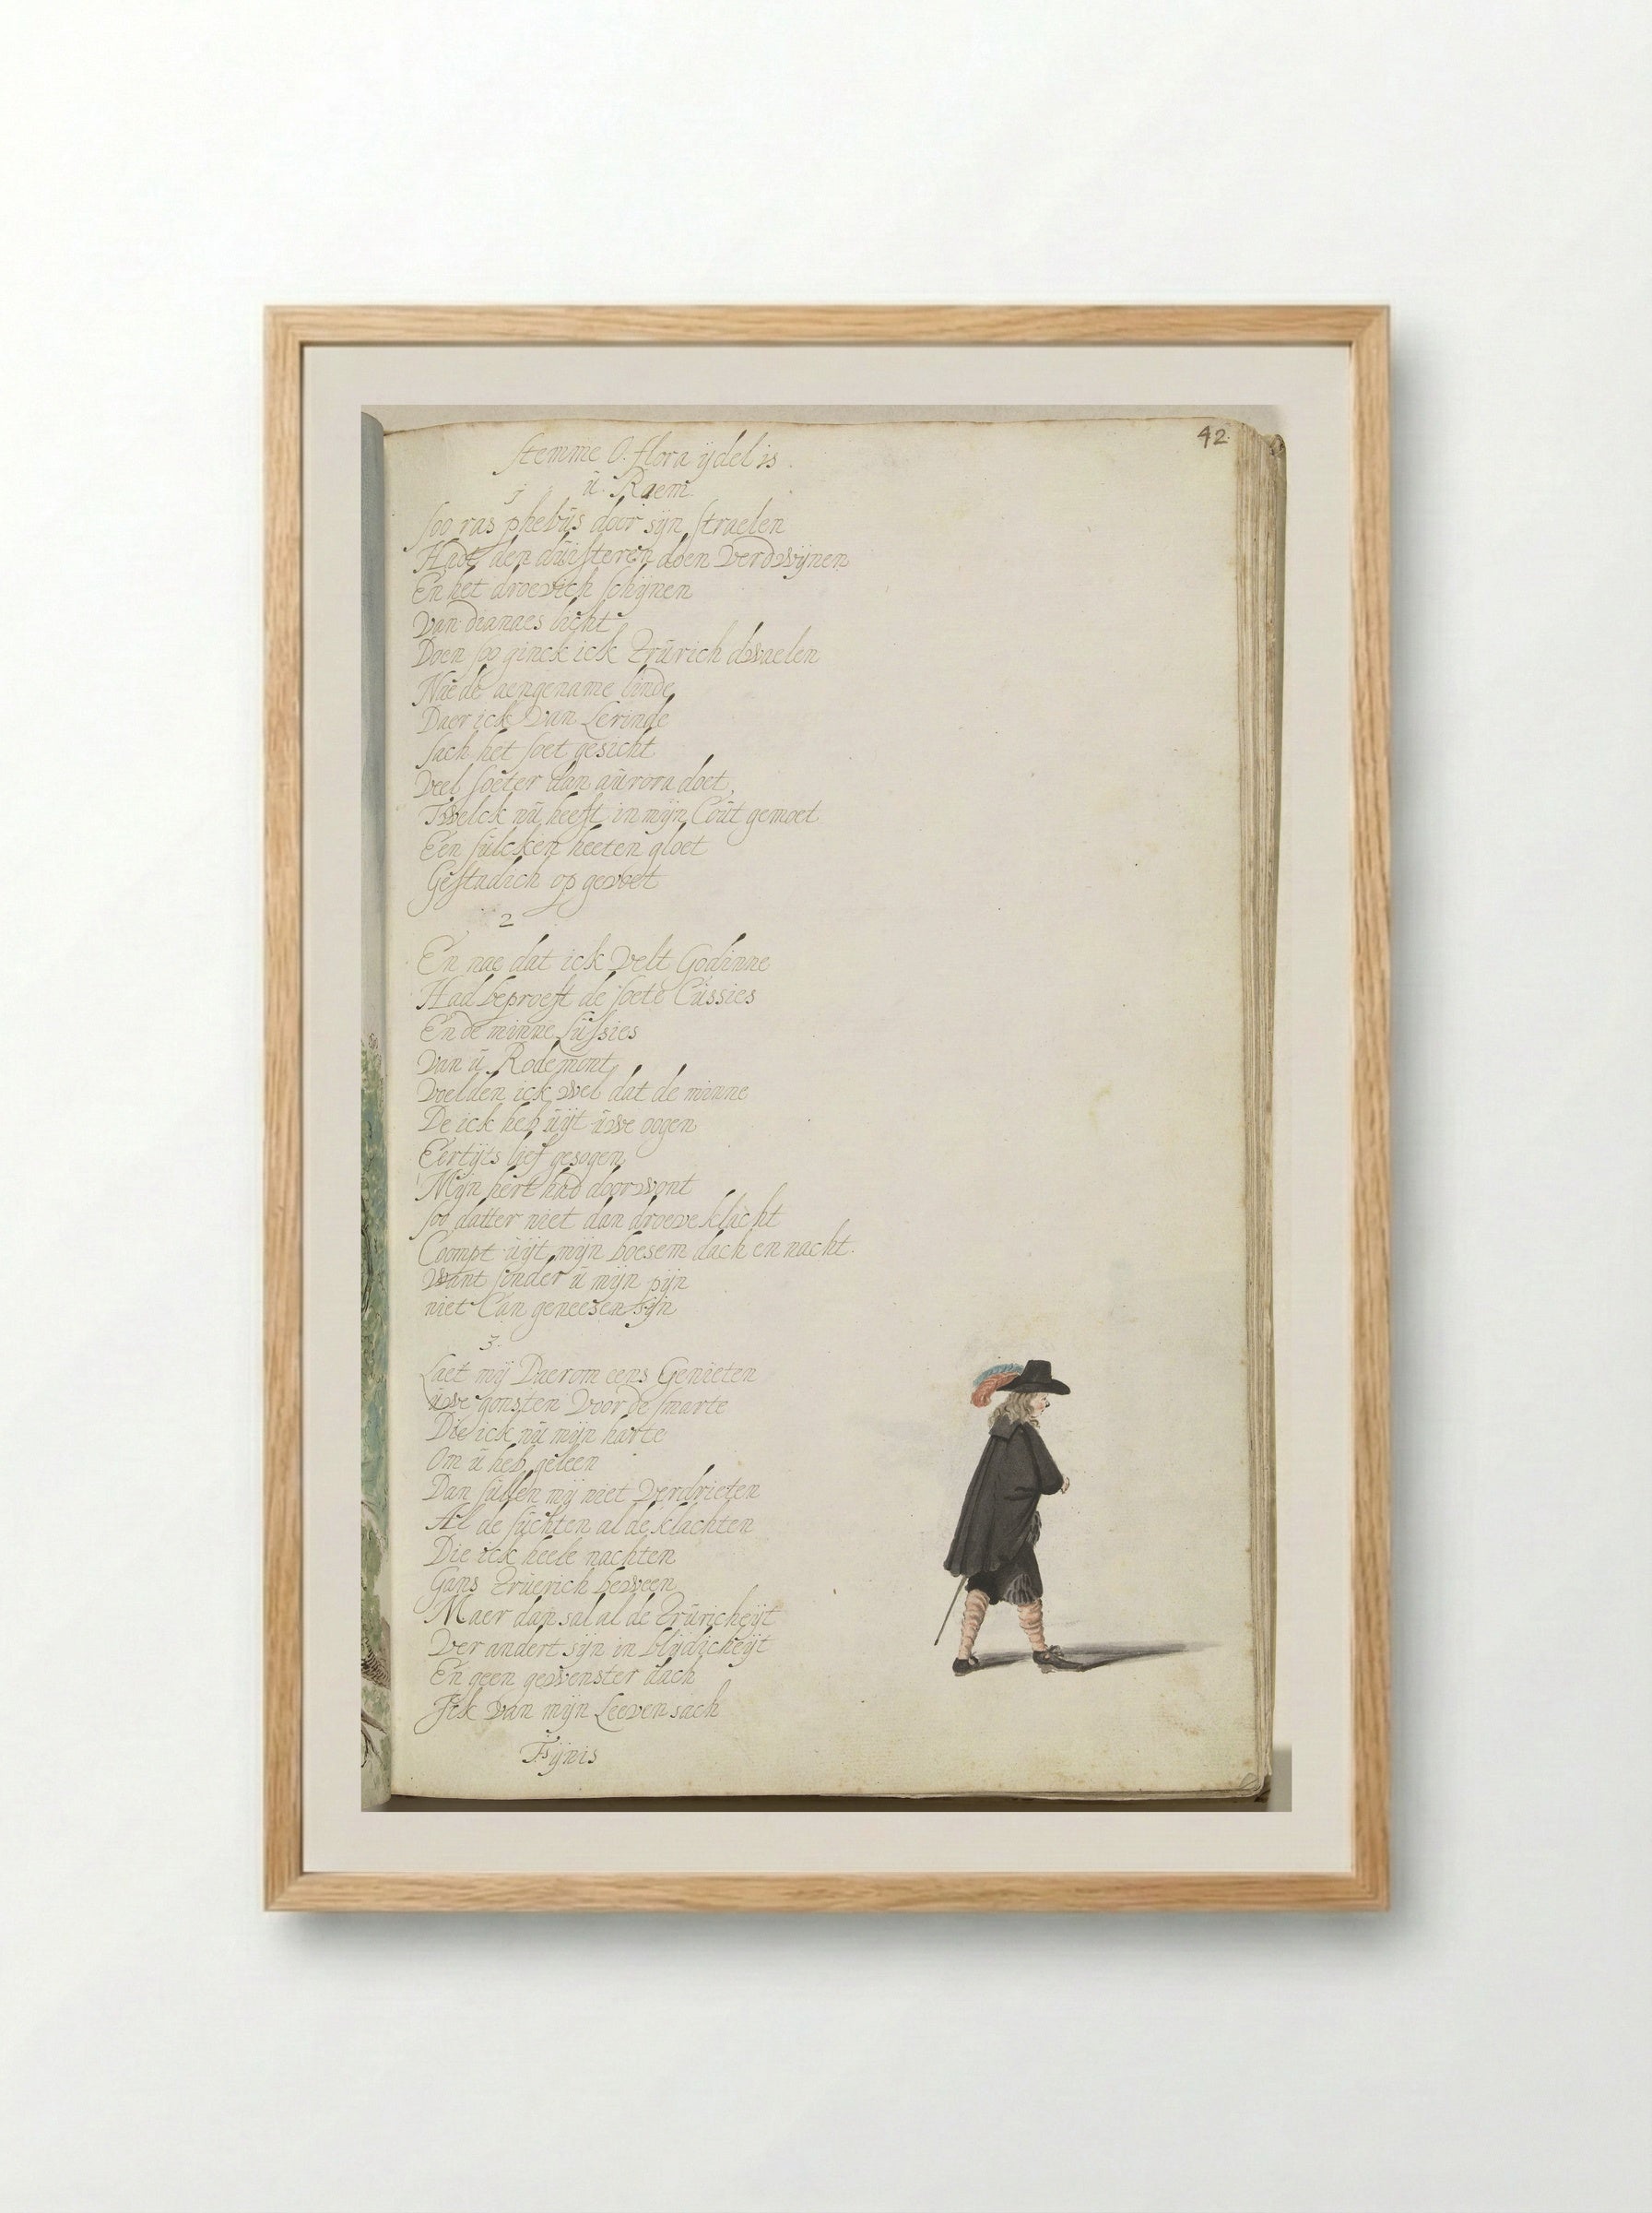 42
Stemme O flora ijdel is
ú Raem
1
Soo ras phebús door sijn straelen
Hadt den dúijsteren doen verdwijnen
En het droevich schijnen
Van dianaes licht
Doen soo ginck ick trúrich dwaelen
Nae de aengename linde
Daer ick van Lerinde
Sach het soet gesicht
Veel soeter dan aúrora doet,
Twelck nú heeft in mijn Coút gemoet
Een súlcken heeten gloet
Gestadich op gevoet
2
En nae dat ick velt Godinne
Had beproeft de soete Cússies
En de minne Lússies
Van ú Rodemont
Voelden ick wel dat de minne
De ick heb úijt úwe oogen
Eertijts lief gesogen
Mijn hert had doorwont
Soo datter niet dan droeve klacht
Coompt úijt mijn boesem dach en nacht.
Want sonder ú mijn pijn
niet Can geneesen sijn
3.
Laet mij Daerom eens Genieten
úwe gonsten voor de smarte
Die ick nú mijn harte
Om ú heb geleen
Dan súllen mij niet verdrieten
Al de súchten al de klachten
Die ick heele nachten
Gans trúerich beween
Maer dan sal al de trúricheijt
Ver andert sijn in blijdicheijt
En geen gewenster dach
Ick van mijn Leeven sach
Fijnis